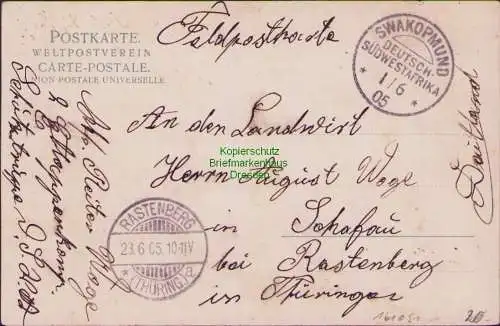 POSTKARTE.
WELTPOSTVEREIN
CARTE-POSTALE.
UNION POSTALE UNIVERSELLE
Feldpostkarte
SWAKOPMUND
DEUTSCH-
SÜDWESTAFRIKA
1/6
05
An den Landwirt
Herrn August Woge
in
Schafau
bei
Rastenberg
in Thüringen
Deutschland
Kopierschutz
Briefmarkenhaus
Dresden
RASTENBERG
23.6.05.10-11V
(THÜRING.) a
Abs. Reiter Woge
2 Etappenkomp.
Schutztruppe D.S.W.A.
20.-